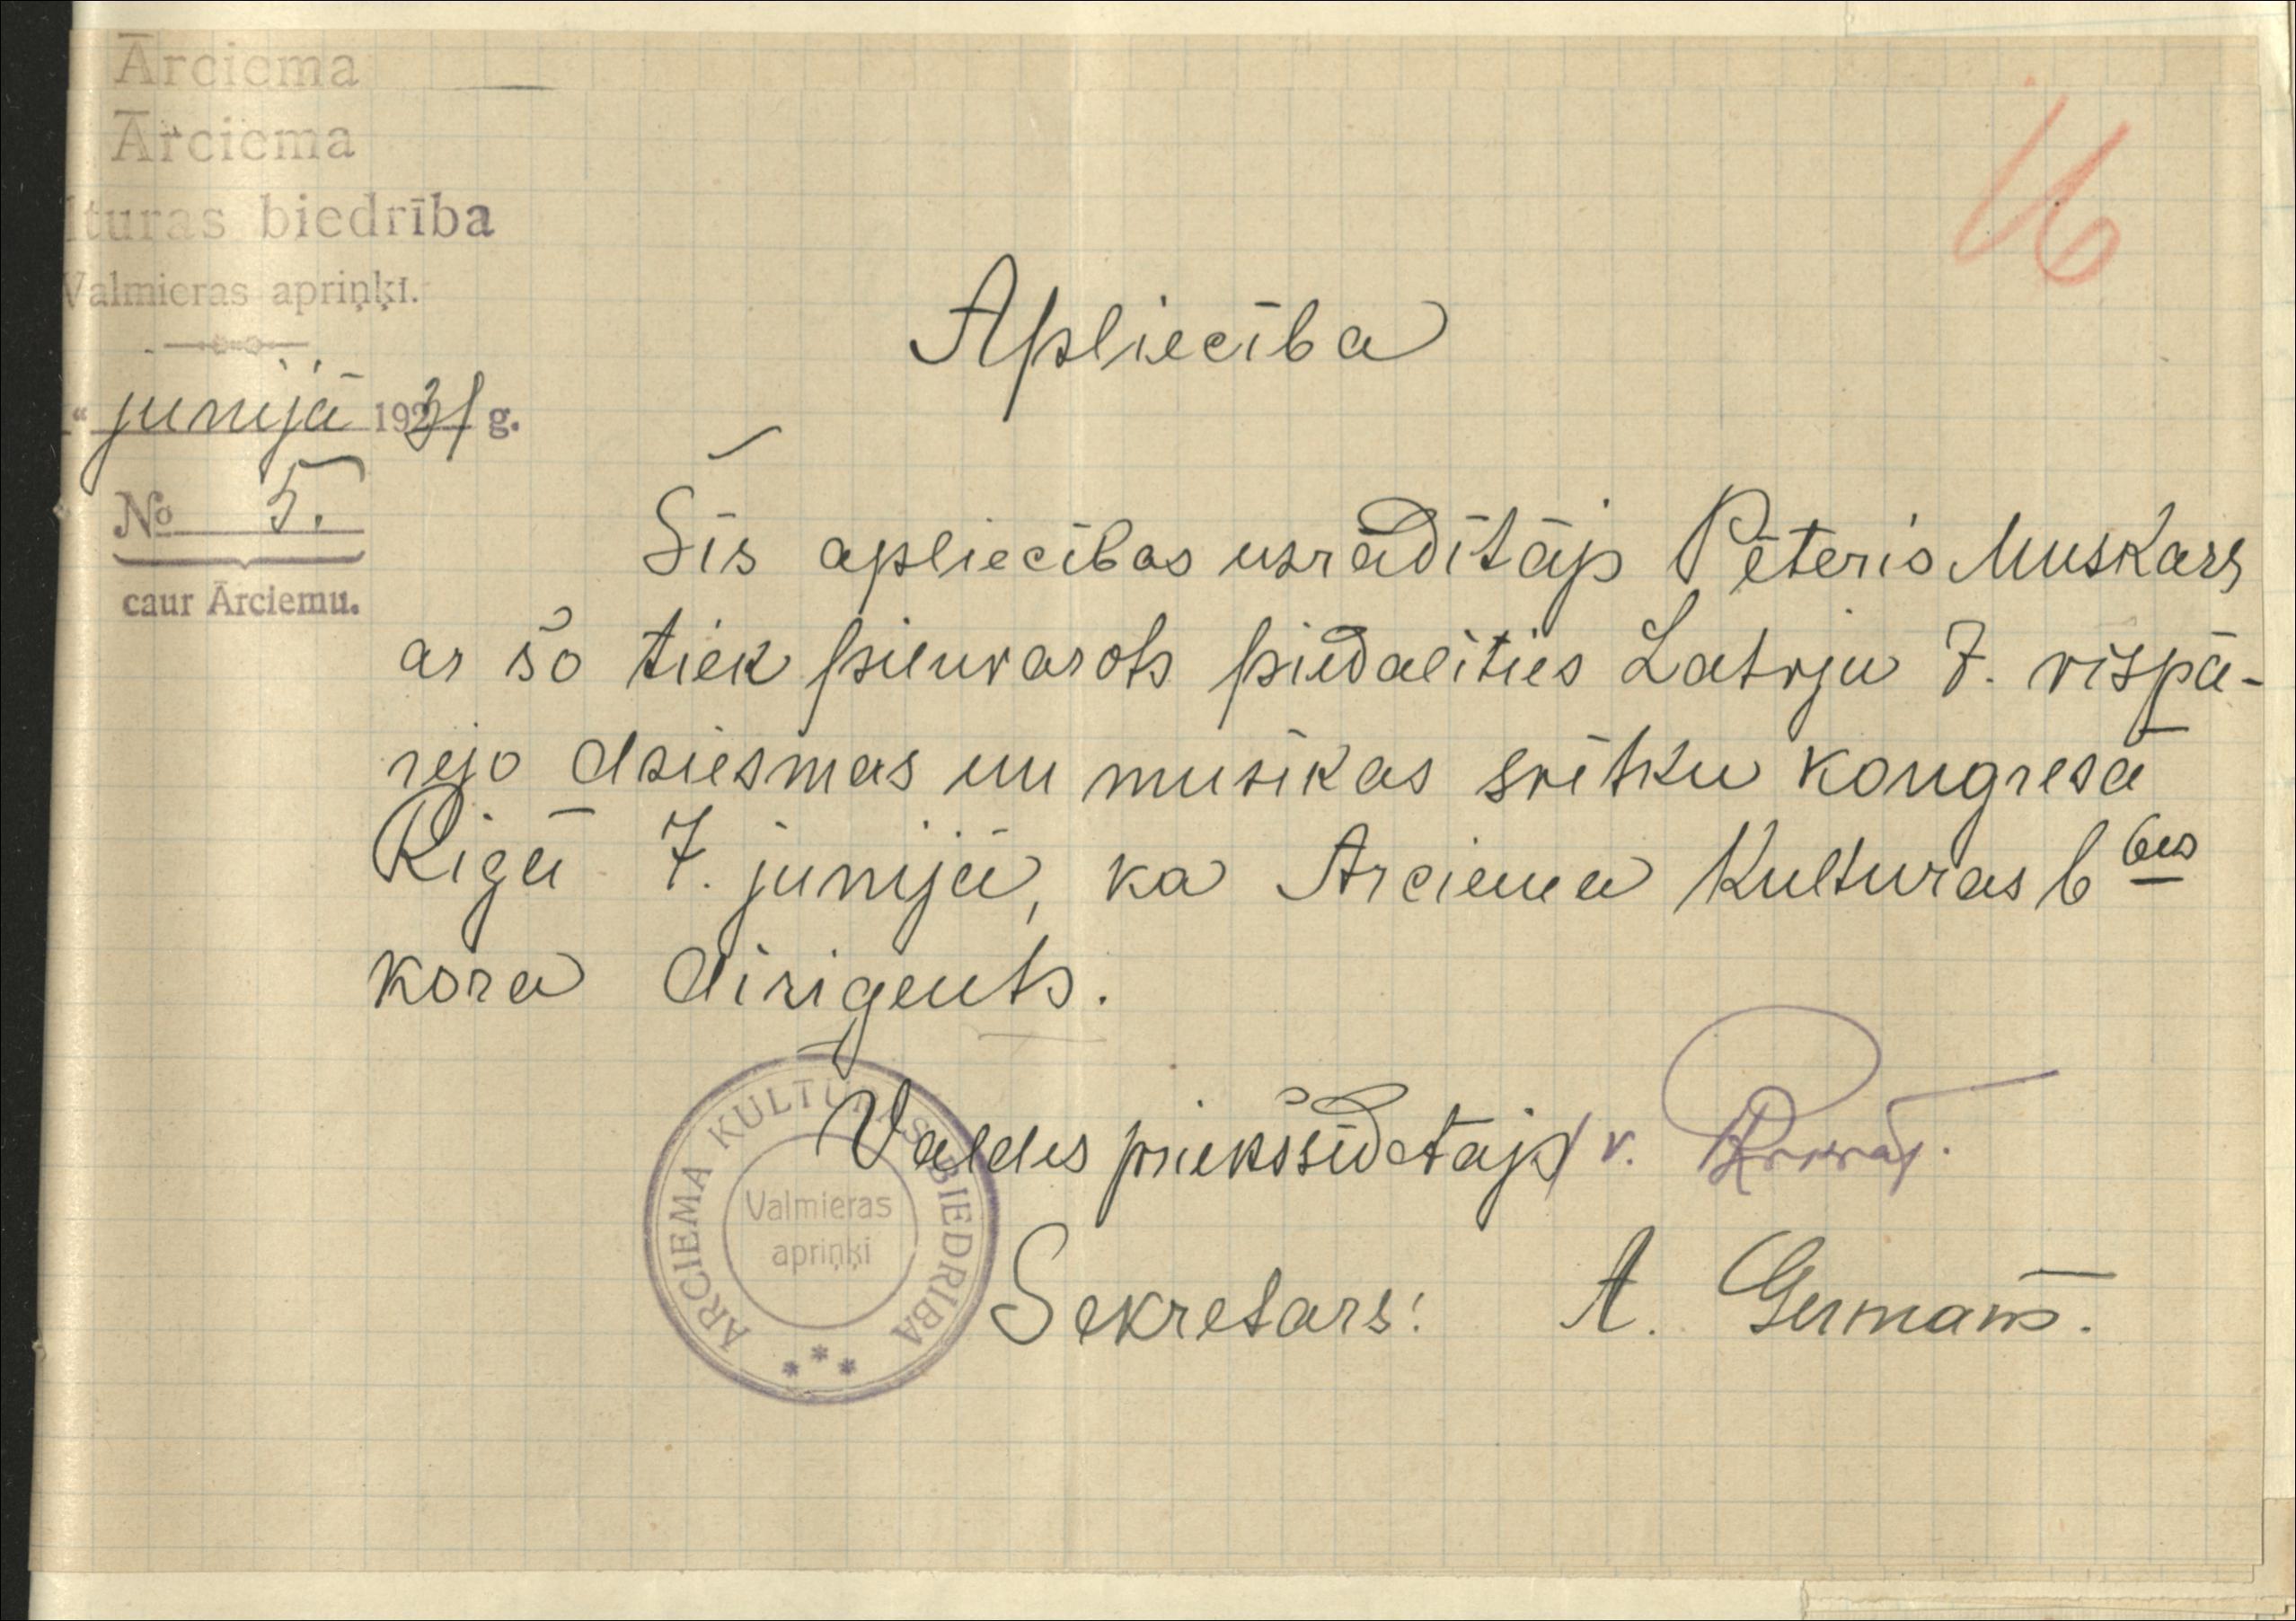 Ārciema
Ārciema
lturas biedrība
Valmieras apriņķī.
" junijā 1931 g.
No 5.
caur Ārciemu.
16
Apliecība
Šīs apliecības usrādītājs Pēteris Muskars
ar šo tiek pilnvarots piedalīties Latvju 7. vispā-
rejo dziesmas un musikas svētku kongresā
Rīgā 7. junijā, ka Arciema Kulturas b bas
kora dirigents.
Valdes priekšsēdetājs v.
Sekretars: A. Germans.
ĀRCIEMA KULTŪRAS BIEDRĪBA
Valmieras
apriņķī